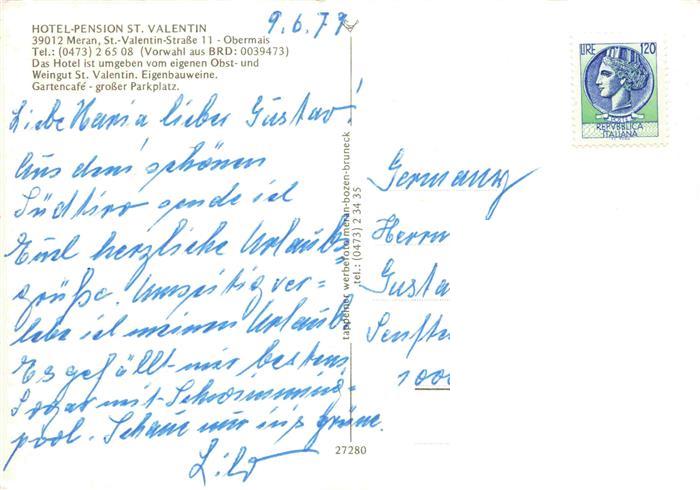 HOTEL-PENSION ST. VALENTIN
39012 Meran, St.-Valentin-Straße 11 - Obermais
Tel.: (0473) 2 65 08 (Vorwahl aus BRD: 0039473)
Das Hotel ist umgeben vom eigenen Obst- und
Weingut St. Valentin. Eigenbauweine.
Gartencafé - großer Parkplatz.
9.6.77
Liebe Maria lieber Gustav!
Aus dem schönen
Südtirol sende ich
Euch herzliche Urlaubs-
grüße. ver-
lebe ich meinen Urlaub
Es gefällt mir bestens
Sogar mit Schwimming-
pool. Schaue nur ins grüne.
tappeiner werbefoto meran-bozen-bruneck
tel.: (0473) 2 34 35
27280
LIRE 120
POSTE
REPVBBLICA
ITALIANA
Germany
Herrn
Gusta
Senft
1000